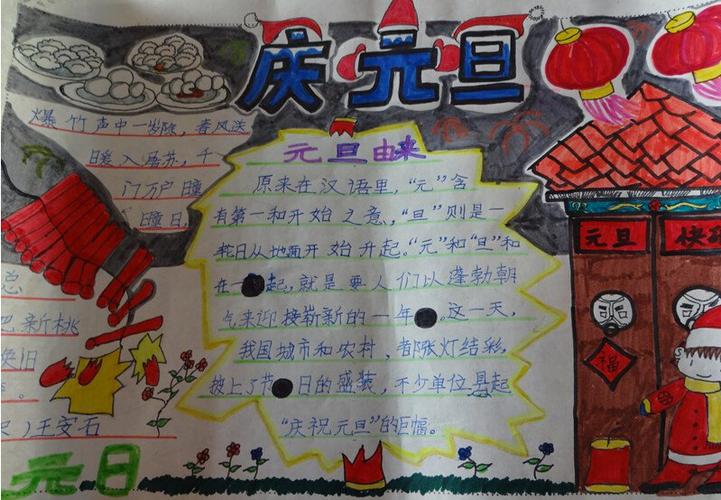 庆元旦
爆竹声中一岁除，春风送
暖入屠苏，千
门万户曈
曈日，
总
把新桃
换旧
。
）王安石
元旦由来
原来在汉语里，“元”含
有第一和开始之意，“旦”则是一
轮日从地面开始升起。“元”和“旦”和
在一起，就是要人们以蓬勃朝
气来迎接崭新的一年。这一天，
我国城市和农村，都张灯结彩，
披上了节日的盛装，不少单位悬起
“庆祝元旦”的巨幅。
元旦
快
福
元日